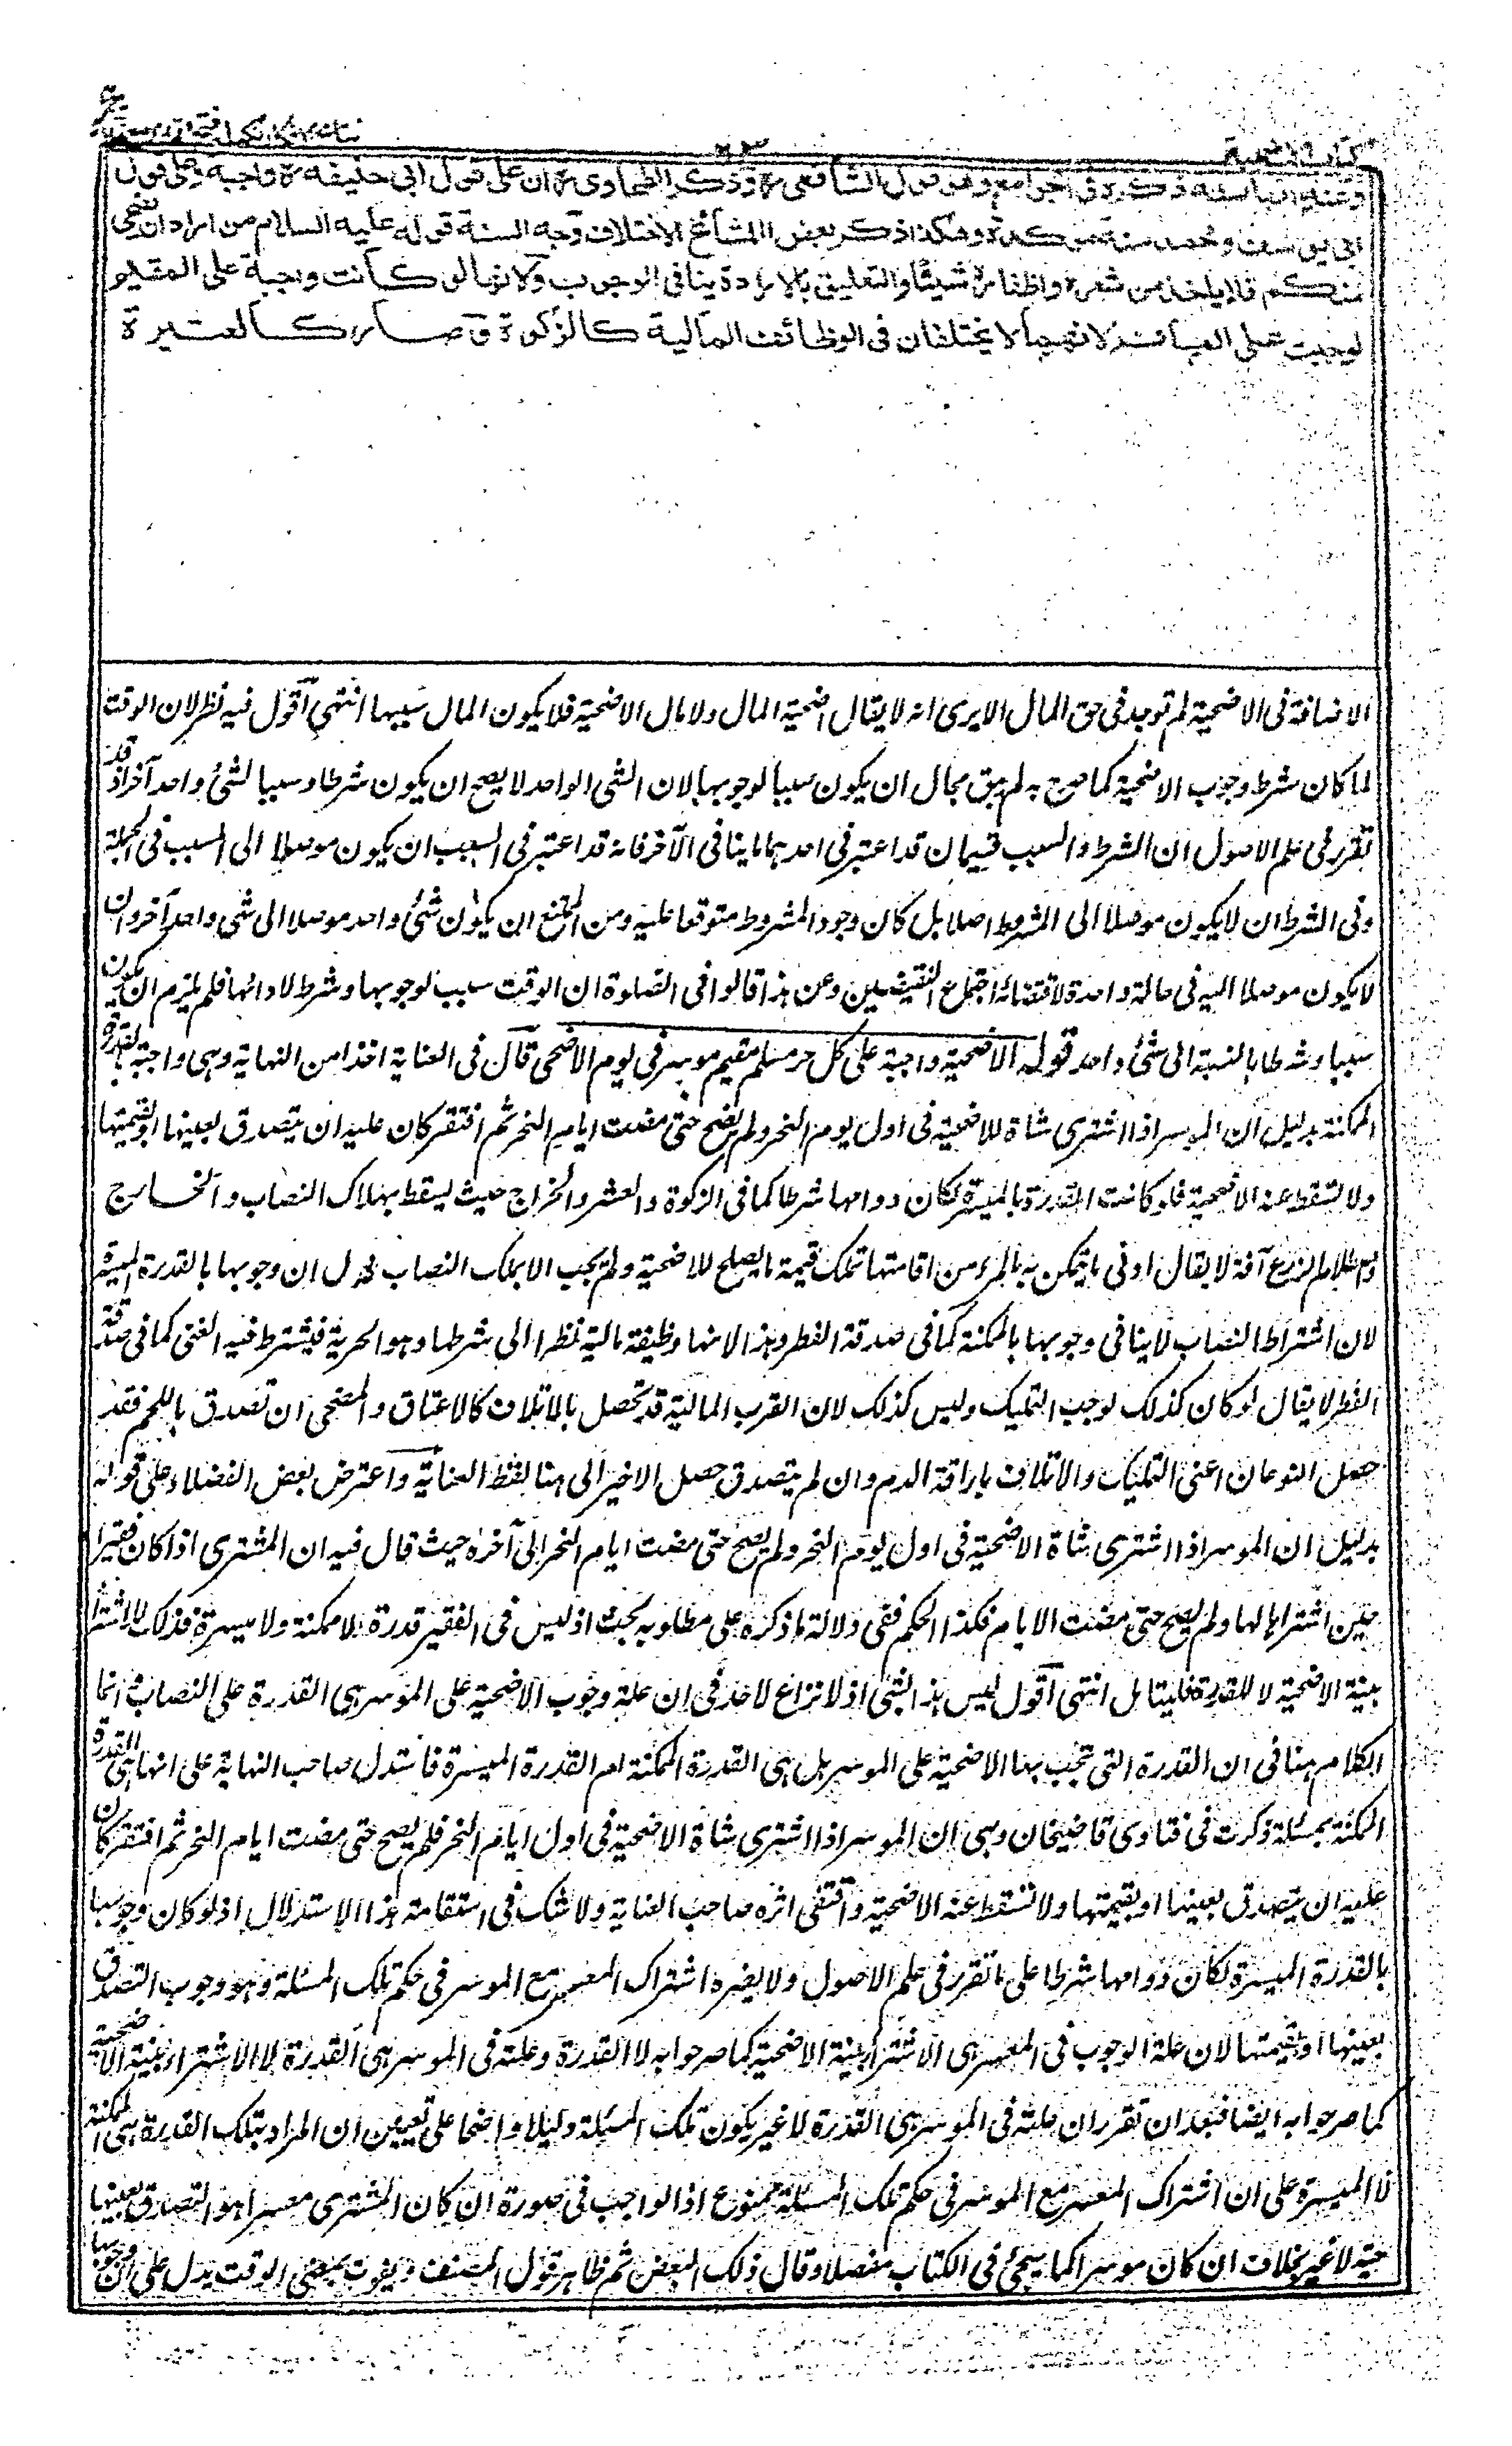 كتاب الاضحية
وعنه انها سنة ذكره في الجوامع وهو قول الشافعي رح وذكر الطحاوي رح ان على قول ابي حنيفة رح واجبة وعلى قول
ابي يوسف ومحمد سنة مؤكدة وهكذا ذكر بعض المشائخ الاختلاف وجه السنة قوله عليه السلام من اراد ان يضحي
منكم فلا ياخذ من شعره واظفاره شيئا والتعليق بالارادة ينافي الوجوب ولانها لو كانت واجبة على المقيم
لوجبت على المسافر لانهما لا يختلفان في الوظائف المالية كالزكوة وصار كالعتيرة
الاضافة في الاضحية لم توجد في حق المال الا يرى انه لا يقال اضحية المال ولا مال الاضحية فلا يكون المال سببها انتهى اقول فيه نظر لان الوقت
لما كان شرط وجوب الاضحية كما صرح به لم يبق مجال ان يكون سببا لوجوبها لان الشئ الواحد لا يصح ان يكون شرطا وسببا لشئ واحد آخر اذ قد
تقرر في علم الاصول ان الشرط والسبب قسيمان قد اعتبر في احدهما ما ينافي الآخر فانه قد اعتبر في السبب ان يكون موصلا الى المسبب في الجملة
وفي الشرط ان لا يكون موصلا الى المشروط اصلا بل كان وجود المشروط متوقفا عليه ومن الممتنع ان يكون شئ واحد موصلا الى شئ واحد آخر وان
لا يكون موصلا اليه في حالة واحدة لاقتضائه اجتماع النقيضين وعن هذا قالوا في الصلوة ان الوقت سبب لوجوبها وشرط لادائها فلم يلزم ان يكون
سببا وشرطا بالنسبة الى شئ واحد قوله الاضحية واجبة على كل حر مسلم مقيم موسر في يوم الاضحى قال في العناية اخذا من النهاية وهي واجبة بالقدرة
الممكنة بدليل ان الموسر اذا اشترى شاة للاضحية في اول يوم النحر ولم يضح حتى مضت ايام النحر ثم افتقر كان عليه ان يتصدق بعينها او بقيمتها
ولا تسقط عنه الاضحية فلو كانت القدرة بالميسرة لكان دوامها شرطا كما في الزكوة والعشر والخراج حيث يسقط بهلاك النصاب والخارج
واصطلام الزرع آفة لا يقال ادنى ما يتمكن به المرء من اقامتها تملك قيمة ما يصلح للاضحية ولم يجب الا بملك النصاب فدل ان وجوبها بالقدرة الميسرة
لان اشتراط النصاب لا ينافي وجوبها بالممكنة كما في صدقة الفطر وهذا لانها وظيفة مالية نظرا الى شرطها وهو الحرية فيشترط فيه الغنى كما في صدقة
الفطر لا يقال لو كان كذلك لوجب التمليك وليس كذلك لان القرب المالية قد تحصل بالاتلاف كالاعتاق والمضحي ان تصدق باللحم فقد
حصل النوعان اعني التمليك والاتلاف باراقة الدم وان لم يتصدق حصل الاخير الى هنا لفظ العناية واعترض بعض الفضلاء على قوله
بدليل ان الموسر اذا اشترى شاة الاضحية في اول يوم النحر ولم يضح حتى مضت ايام النحر الى آخره حيث قال فيه ان المشتري اذا كان فقيرا
حين اشتراها لها ولم يضح حتى مضت الايام فكذا الحكم ففي دلالة ما ذكره على مطلوبه بحث اذ ليس في الفقير قدرة لا ممكنة ولا ميسرة فذلك للاشتراء
بنية الاضحية لا للقدرة فليتامل انتهى اقول ليس هذا بشئ اذ لا نزاع لاحد في ان علة وجوب الاضحية على الموسر هي القدرة على النصاب انما
الكلام هنا في ان القدرة التي تجب بها الاضحية على الموسر هل هي القدرة الممكنة ام القدرة الميسرة فاستدل صاحب النهاية على انها هي القدرة
الممكنة بمسئلة ذكرت في فتاوى قاضيخان وهي ان الموسر اذا اشترى شاة الاضحية في اول ايام النحر فلم يضح حتى مضت ايام النحر ثم افتقر كان
عليه ان يتصدق بعينها او بقيمتها ولا تسقط عنه الاضحية واقتفى اثره صاحب العناية ولا شك في استقامة هذا الاستدلال اذ لو كان وجوبها
بالقدرة الميسرة لكان دوامها شرطا على ما تقرر في علم الاصول ولا يضره اشتراك المعسر مع الموسر في حكم تلك المسئلة وهو وجوب التصدق
بعينها او بقيمتها لان علة الوجوب في المعسر هي الاشتراء بنية الاضحية كما صرحوا به لا القدرة وعلته في الموسر هي القدرة لا الاشتراء بنية الاضحية
كما صرحوا به ايضا فبعد ان تقرر ان علته في الموسر هي القدرة لا غير يكون تلك المسئلة دليلا واضحا على تعيين ان المراد بتلك القدرة هي الممكنة
لا الميسرة على ان اشتراك المعسر مع الموسر في حكم تلك المسئلة ممنوع اذ الواجب في صورة ان كان المشتري معسرا هو التصدق بعينها
حية لا غير بخلاف ان كان موسرا كما سيجئ في الكتاب مفصلا وقال ذلك البعض ثم ظاهر قول المصنف ويفوت بمضي الوقت يدل على ان وجوبها